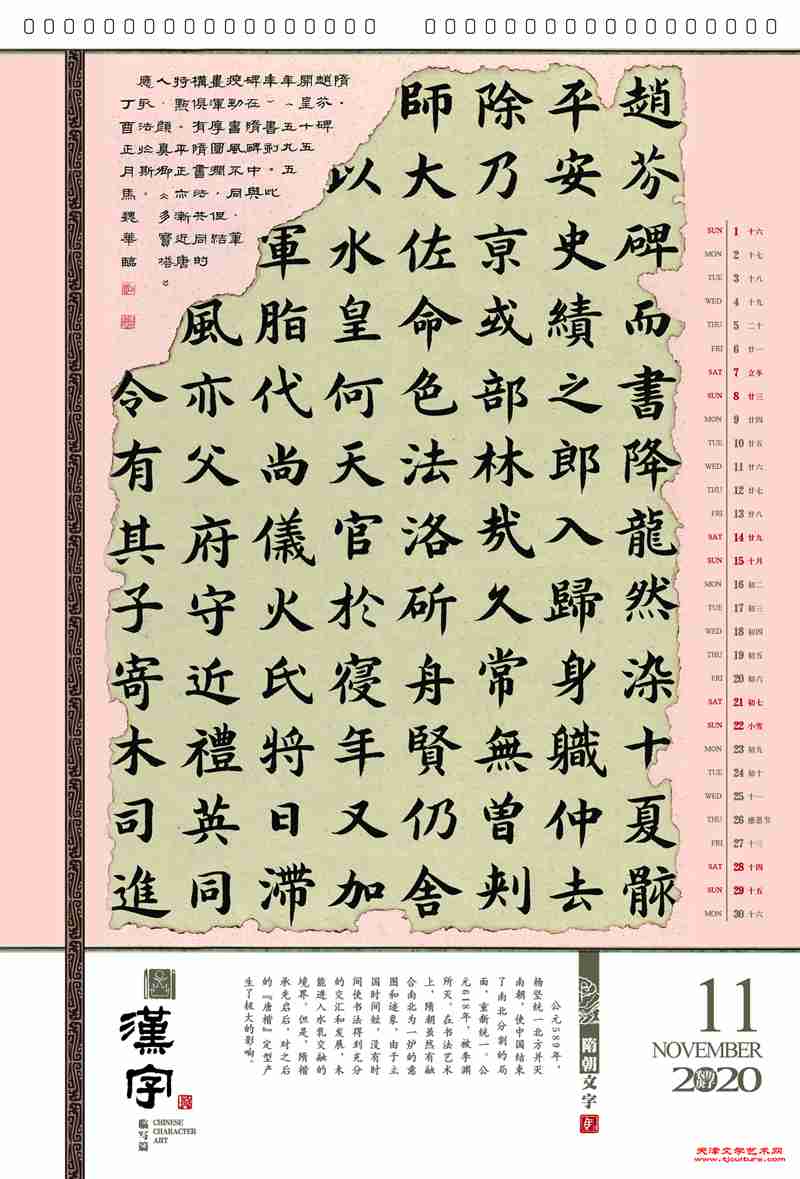 趙芬碑而書降龍然染十夏
平安史績之郎入歸身職仲去
除乃亰或部林哉久常無曾刺
師大佐命色法洛斫舟賢仍舍
以水皇何天官於寝年又加
軍脂代尚儀火氏將日滯
風亦父府守近禮英同
令有其子寄木司進
隋
趙芬碑
開皇十五
丁酉正月
魏華臨
SUN 1 十六
MON 2 十七
TUE 3 十八
WED 4 十九
THU 5 二十
FRI 6 廿一
SAT 7 立冬
SUN 8 廿三
MON 9 廿四
TUE 10 廿五
WED 11 廿六
THU 12 廿七
FRI 13 廿八
SAT 14 廿九
SUN 15 十月
MON 16 初二
TUE 17 初三
WED 18 初四
THU 19 初五
FRI 20 初六
SAT 21 初七
SUN 22 小雪
MON 23 初九
TUE 24 初十
WED 25 十一
THU 26 感恩节
FRI 27 十三
SAT 28 十四
SUN 29 十五
MON 30 十六
11
NOVEMBER
2020
隋朝文字
公元589年,
杨坚统一北方并灭
南朝,使中国结束
了南北分割的局
面,重新统一。公
元618年,被李渊
所灭。在书法艺术
上,隋朝虽然有融
合南北为一炉的意
图和迹象,由于立
国时间短,没有时
间使书法得到充分
的交汇和发展,未
能进入水乳交融的
境界。但是,隋楷
承先启后,对之后
的『唐楷』定型产
生了极大的影响。
漢字
临写篇
CHINESE
CHARACTER
ART
天津文学艺术网
www.tjculture.com